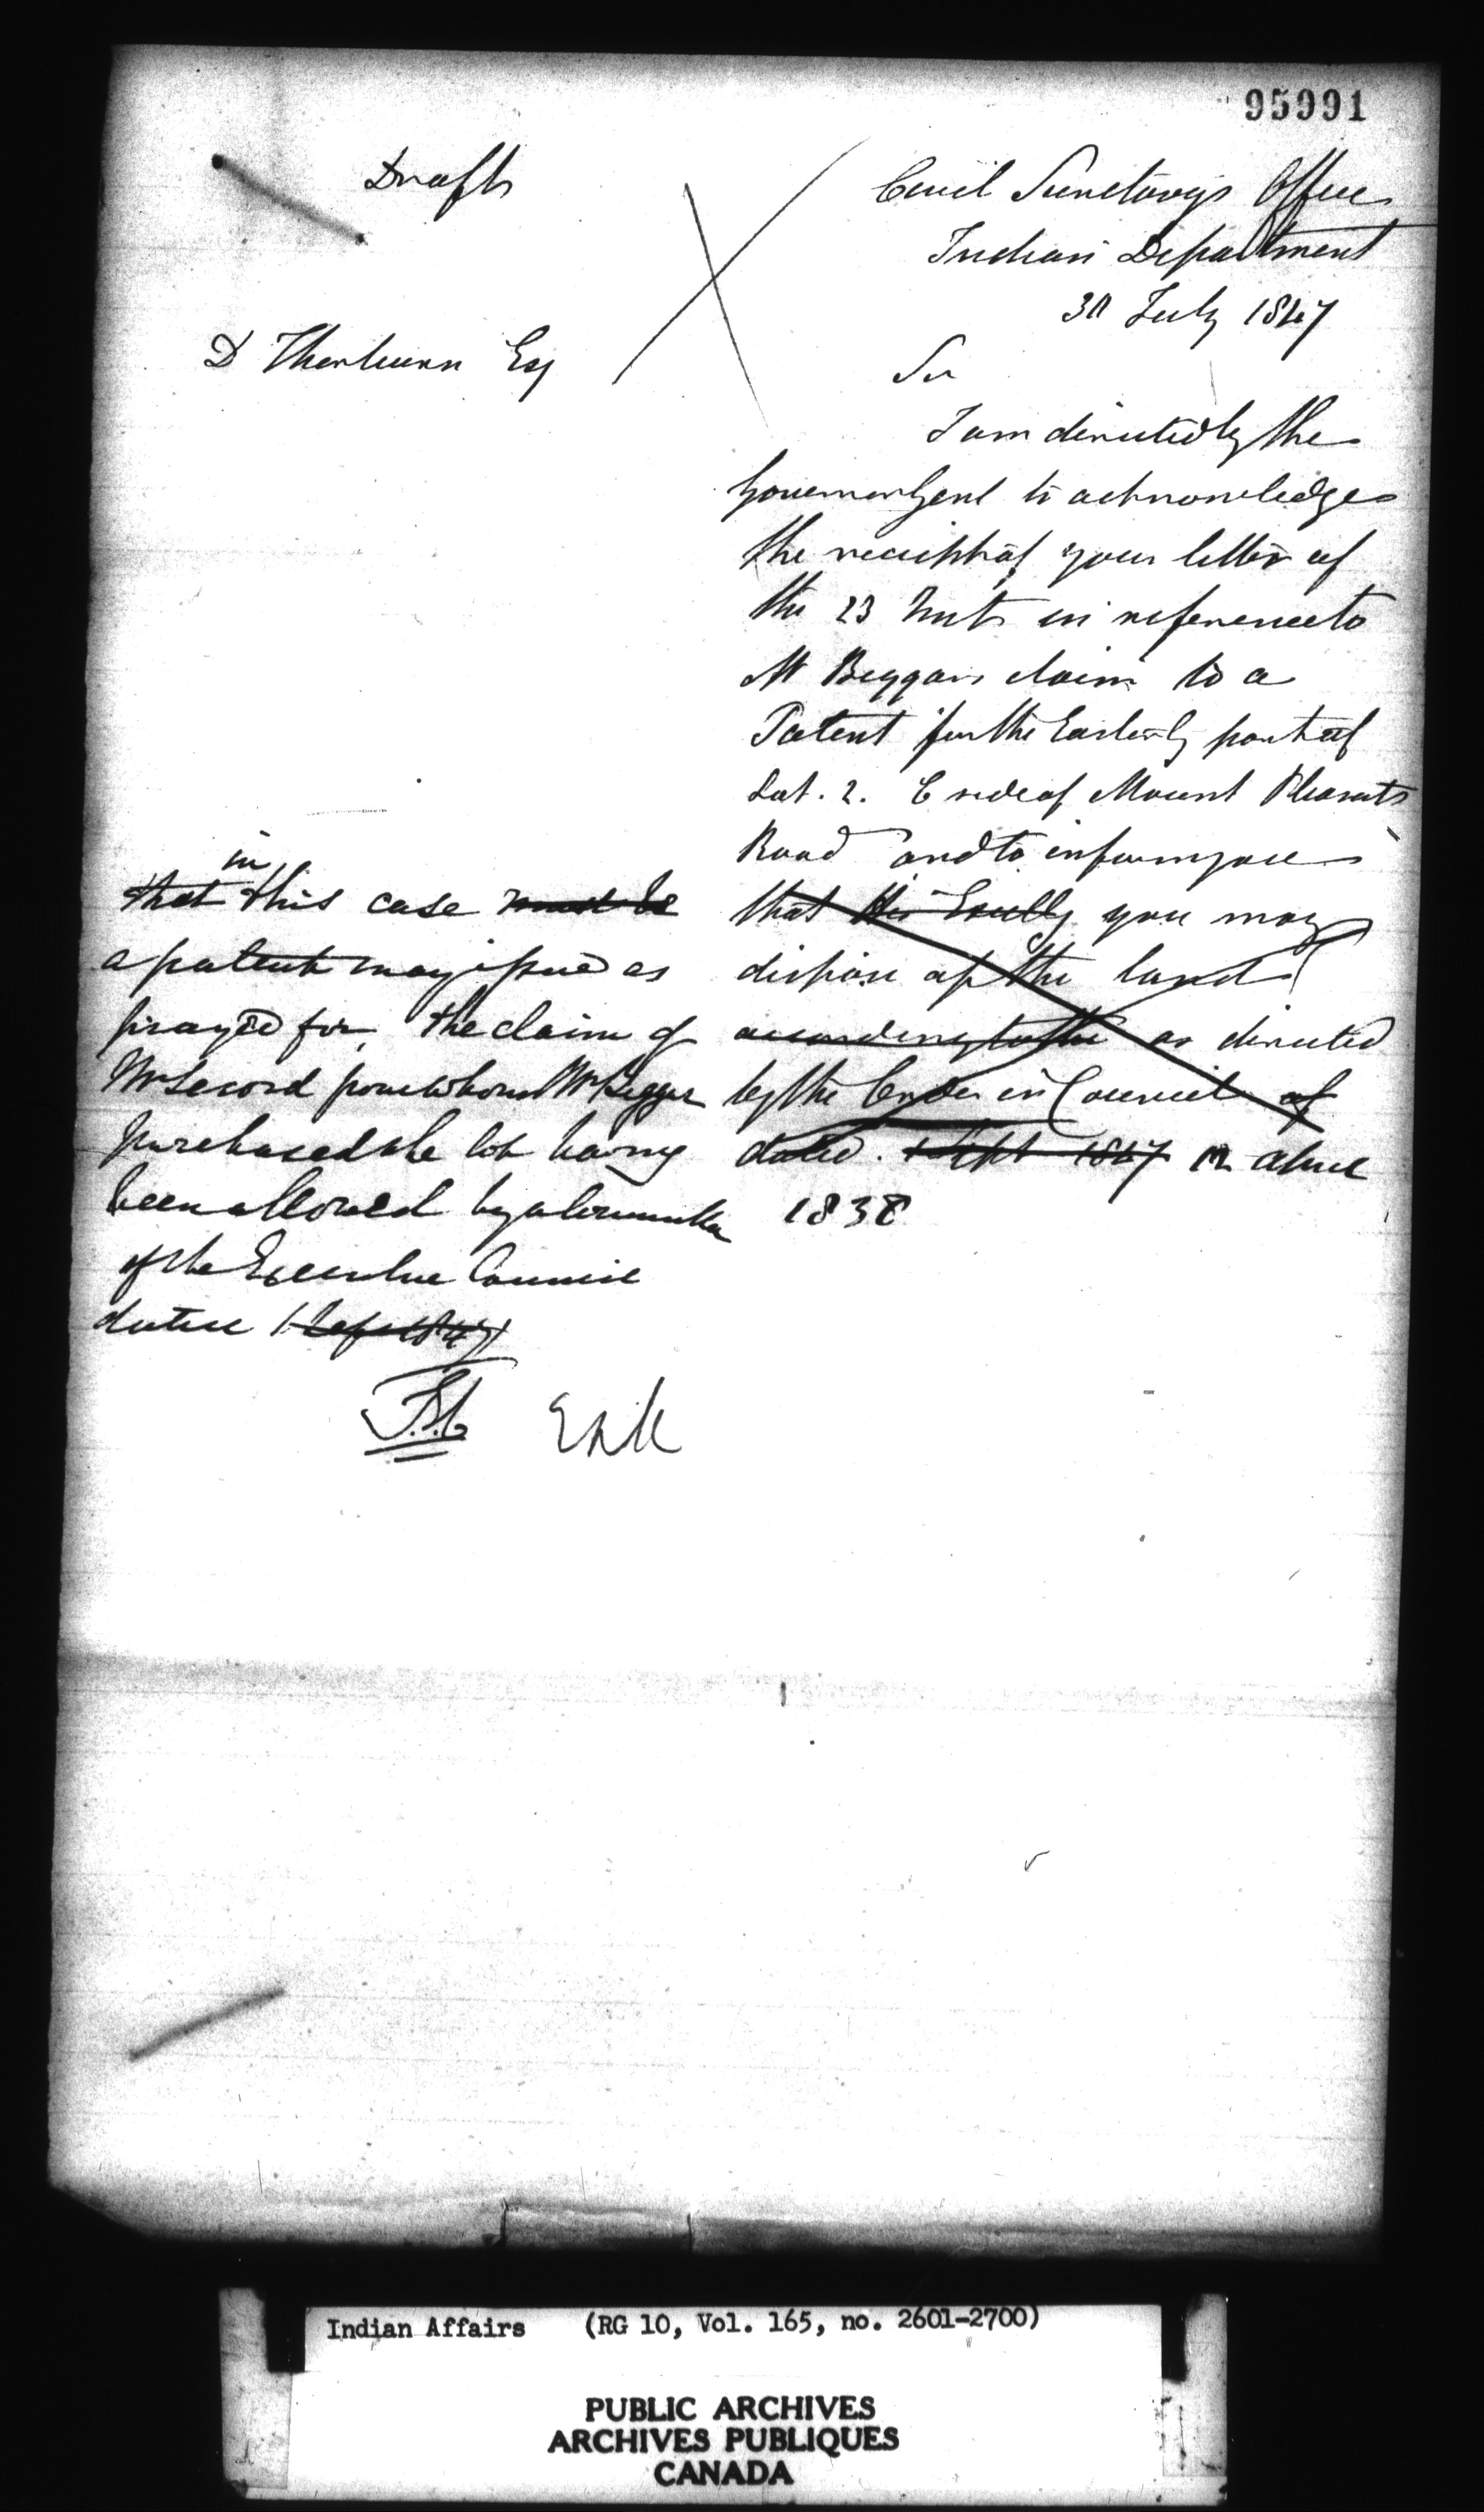 95991
Draft
Civil Secretary's Office
Indian Department
30 July 1847
D Thorburn Esq
Sir
I am directed by the
Governor Genl to acknowledge
the receipt of your letter of
the 23 Inst in reference to
Mr Biggars claim to a
Patent for the Easterly part of
Lot. 2. E side of Mount Pleasant
Road and to inform you
that His Excelly you may
dispose of the land
according to the as directed
by the Order in Council of
dated. 1 Sept 1847 12 
1838
in
that this case must be
a patent may issue as
prayed for, the claim of
Mr Secord from whom Mr Biggar
purchased the lot having
been allowed by a Committee
of the Executive Council
dated 1 Sept 1847
Indian Affairs (RG 10, Vol. 165, no. 2601-2700)
PUBLIC ARCHIVES
ARCHIVES PUBLIQUES
CANADA